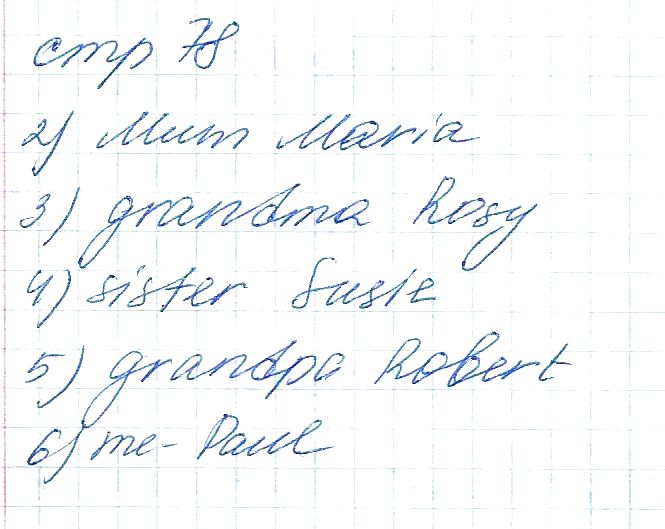 стр 78
2) Mum Maria
3) grandma Rosy
4) sister Susie
5) grandpa Robert
6) me- Paul